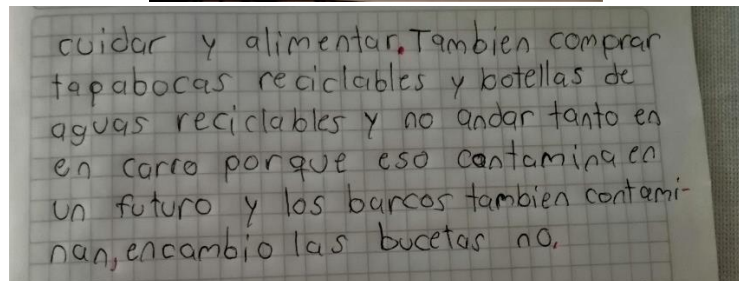 cuidar y alimentar. Tambien comprar
tapabocas reciclables y botellas de
aguas reciclables y no andar tanto en
en carro porque eso contamina en
un futuro y los barcos tambien contami-
nan, encambio las bucetas no.